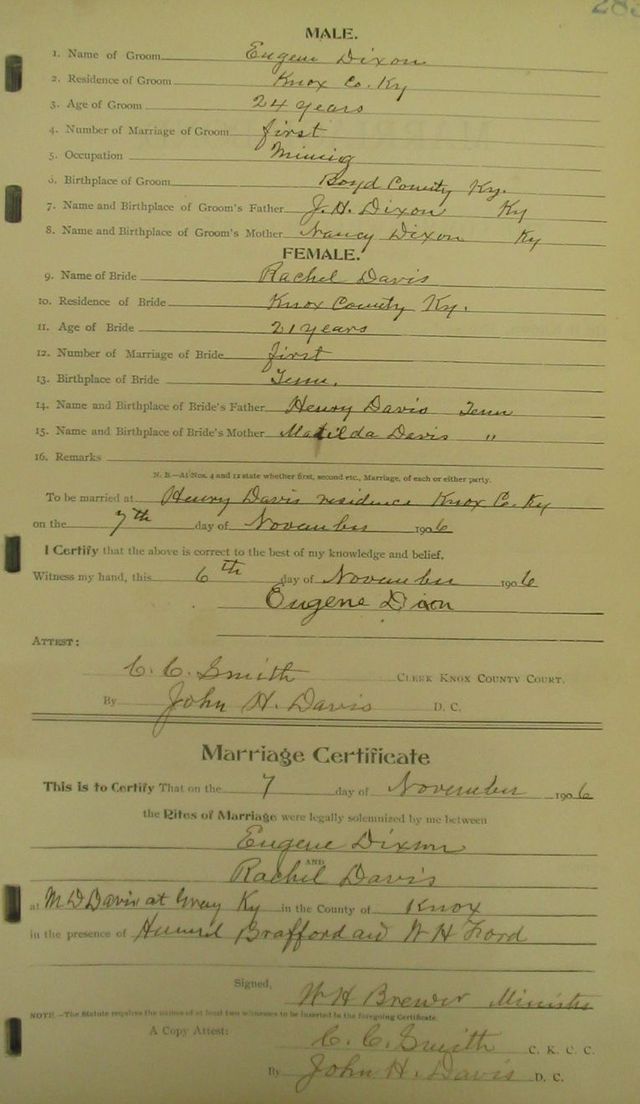 283
MALE.
1. Name of Groom Eugene Dixon
2. Residence of Groom Knox Co. Ky
3. Age of Groom 24 years
4. Number of Marriage of Groom first
5. Occupation Mining
6. Birthplace of Groom Boyd County Ky.
7. Name and Birthplace of Groom's Father J. H. Dixon Ky
8. Name and Birthplace of Groom's Mother Nancy Dixon Ky
FEMALE.
9. Name of Bride Rachel Davis
10. Residence of Bride Knox County Ky.
11. Age of Bride 21 years
12. Number of Marriage of Bride first
13. Birthplace of Bride Tenn.
14. Name and Birthplace of Bride's Father Henry Davis Tenn
15. Name and Birthplace of Bride's Mother Matilda Davis "
16. Remarks
N. B.—At Nos. 4 and 12 state whether first, second etc., Marriage, of each or either party.
To be married at Henry Davis residence Knox Co. Ky
on the 7th day of November 1906
I Certify that the above is correct to the best of my knowledge and belief.
Witness my hand, this 6th day of November 1906
Eugene Dixon
ATTEST:
C. C. Smith CLERK KNOX COUNTY COURT.
By John H. Davis D. C.
Marriage Certificate
This is to Certify That on the 7 day of November 1906
the Rites of Marriage were legally solemnized by me between
Eugene Dixon
AND
Rachel Davis
at M D Davis at Gray Ky in the County of Knox
in the presence of Brafford and W H Ford
Signed, W H Brewer Minister
NOTE.—The Statute requires the names of at least two witnesses to be inserted in the foregoing Certificate.
A Copy Attest: C. C. Smith C. K. C. C.
By John H. Davis D. C.